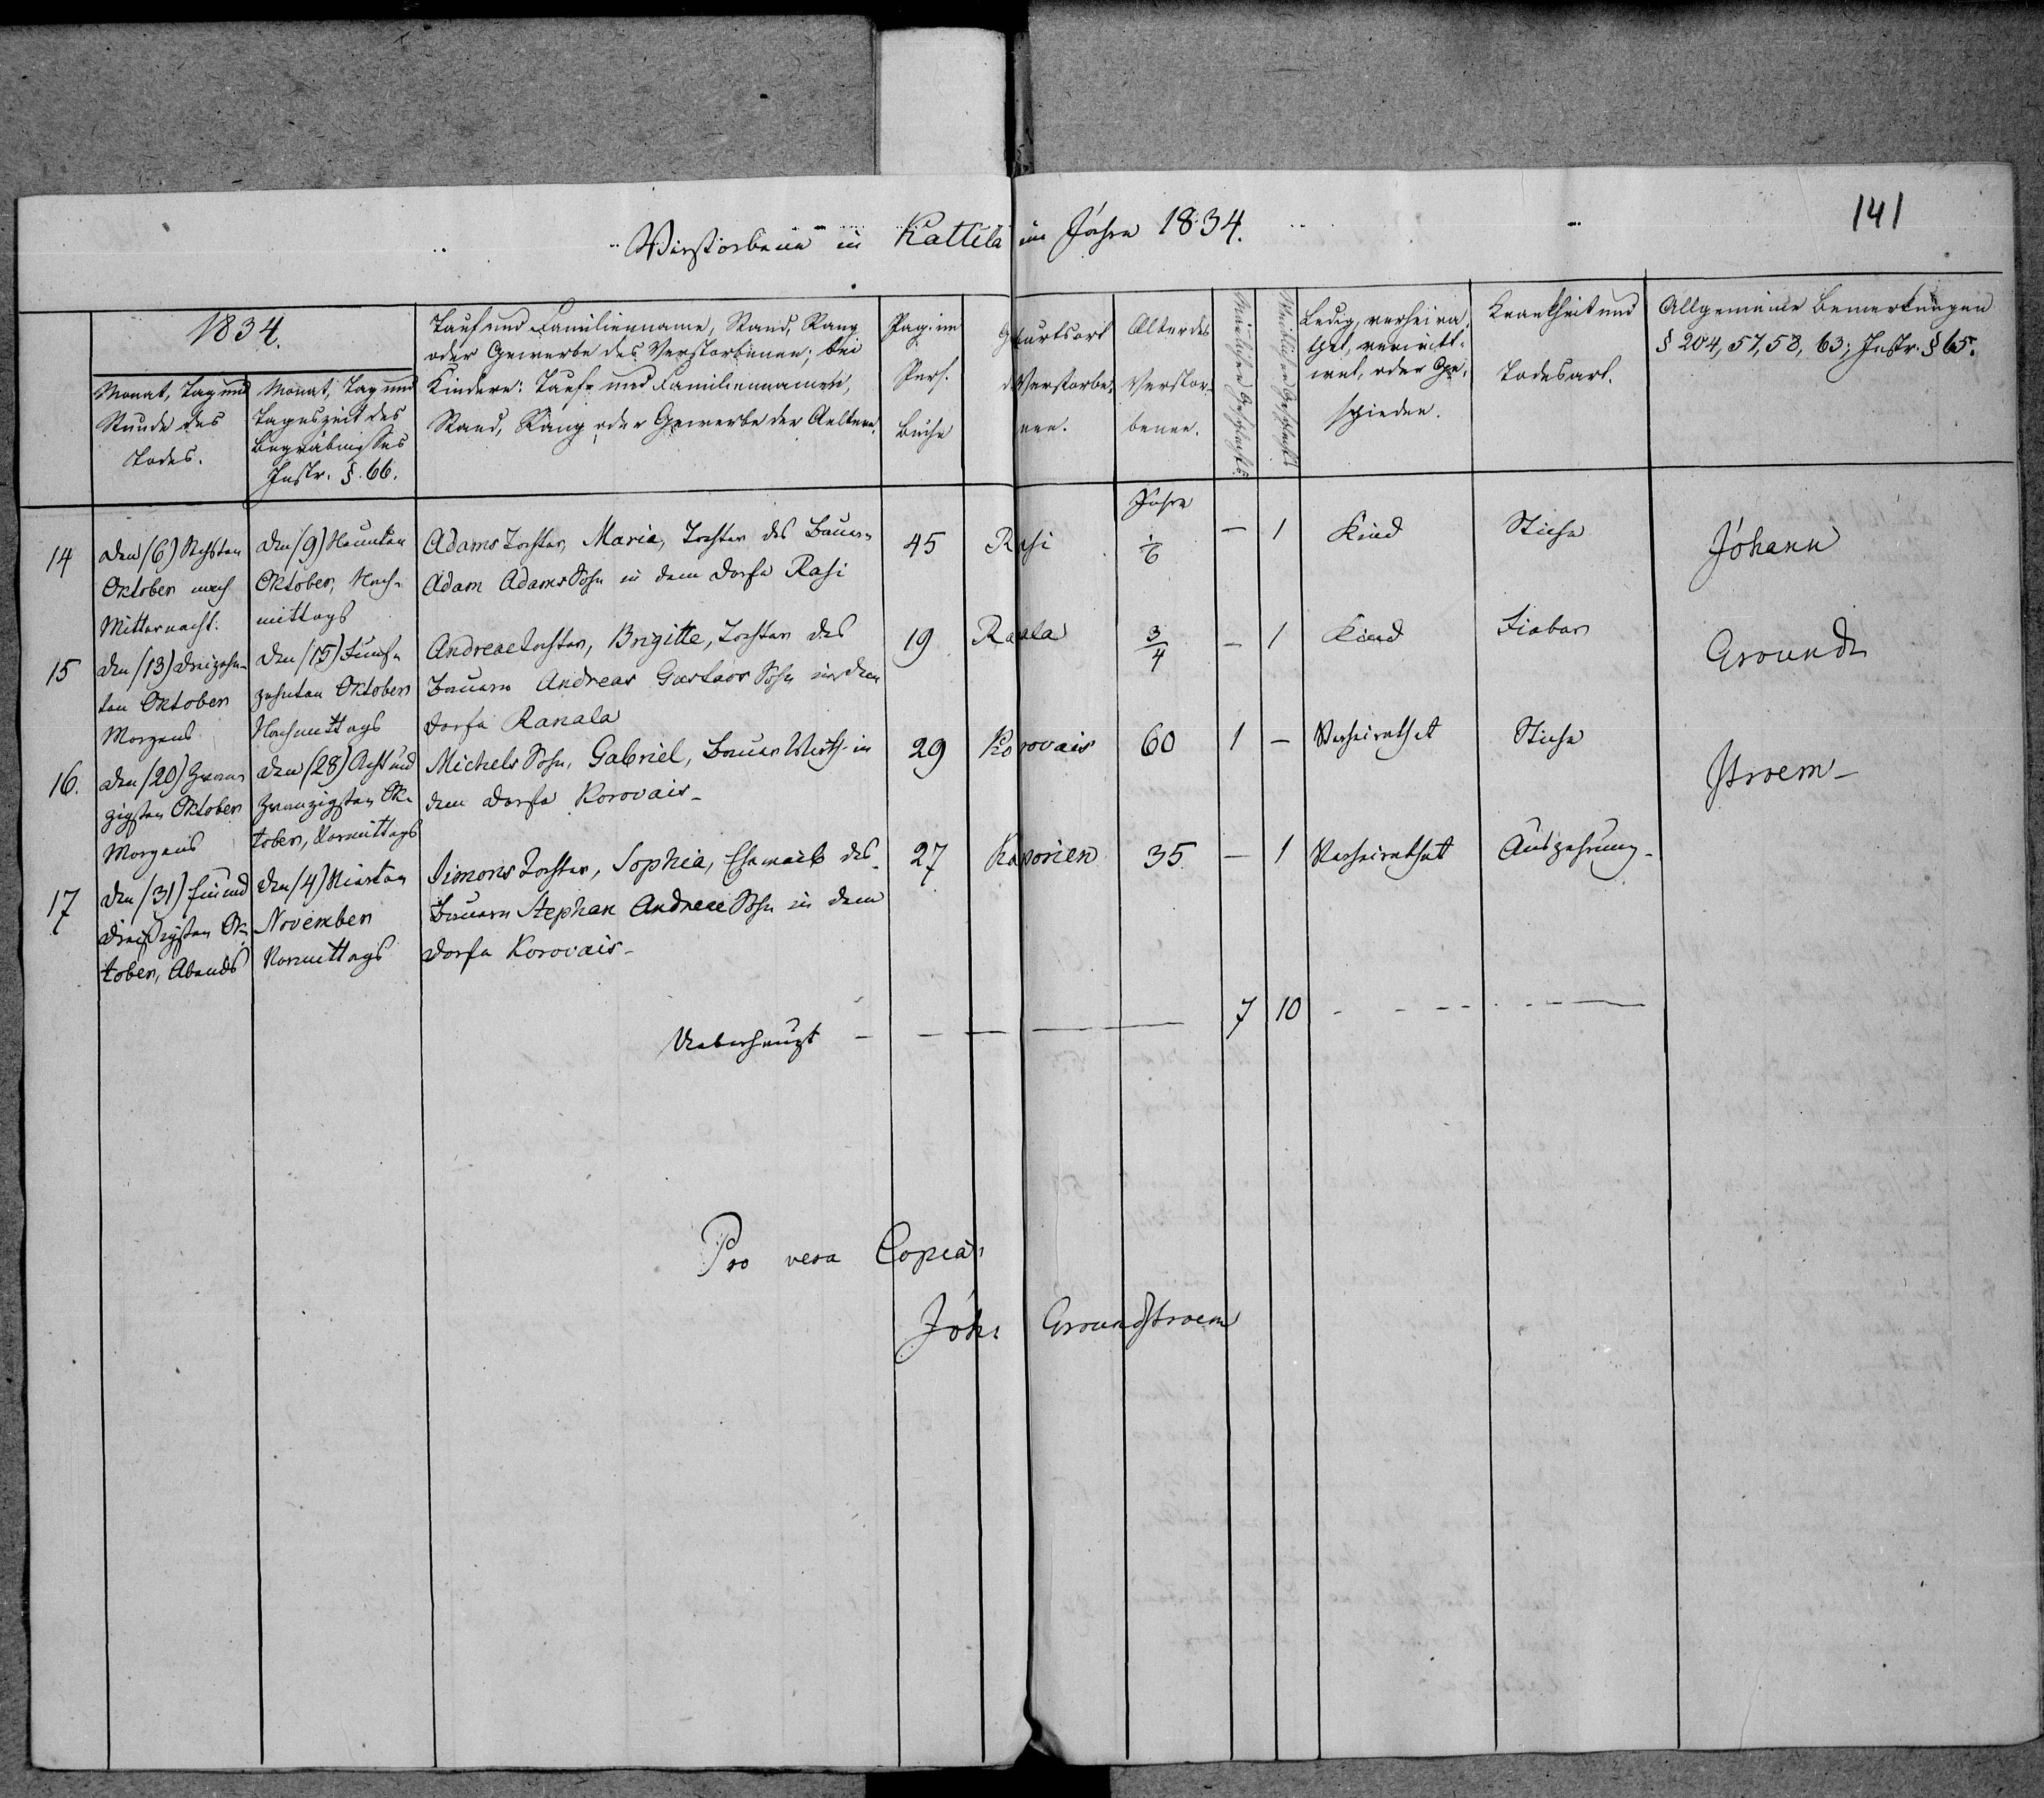 141
Verstorbene in Kattila im Jahre 1834.
1834.
Monat, Tag und
Stunde des
Todes.
Monat, Tag und
Tageszeit des
Begräbnisses
Instr. §. 66.
Tauf- und Familienname, Stand, Rang
oder Gewerbe des Verstorbenen; bei
Kindern: Tauf- und Familiennamen,
Stand, Rang oder Gewerbe der Aeltern.
Pag. im
Pers.
Buche
Geburtsort
d. Verstorbe-
nen.
Alter des
Verstor-
benen.
Männlichen Geschlechts
Weiblichen Geschlechts
Ledig, verheira-
thet, verwitt-
wet, oder Ge-
schieden.
Krankheit und
Todesart.
Allgemeine Bemerkungen
§ 204, 57, 58, 63; Instr. § 65.
Jahre
14 den (6) Sechsten
Oktober nach
Mitternacht.
den (9) Neunten
Oktober, Nach-
mittags
Adams Tochter, Maria, Tochter des Bauern
Adam Adams Sohn in dem Dorfe Rasi
45 Rasi 1/6 — 1 Kind Stiche
15 den (13) dreizehn-
ten Oktober
Morgens
den (15) Fünf-
zehnten Oktober
Nachmittags
Andreae Tochter, Brigitte, Tochter des
Bauern Andreas Gustavs Sohn in dem
Dorfe Ranala
19 Ranala 3/4 — 1 Kind Fieber
16. den (20) Zwan-
zigsten Oktober
Morgens
den (28) Acht und
Zwanzigsten Ok-
tober, Vormittags
Michels Sohn, Gabriel, Bauer Wirth in
dem Dorfe Korovais-
29 Korovais 60 1 — Verheirathet Stiche
17 den (31) Ein und
dreißigsten Ok-
tober, Abends
den (4) Vierten
November
Vormittags
Simons Tochter, Sophia, Eheweib des
Bauern Stephan Andreae Sohn in dem
Dorfe Korovais-
27 Koporien 35 — 1 Verheirathet Auszehrung-
Johann
Grund
stroem-
Ueberhaupt — 7 10
Pro vera Copia:
Joh: Grundstroem